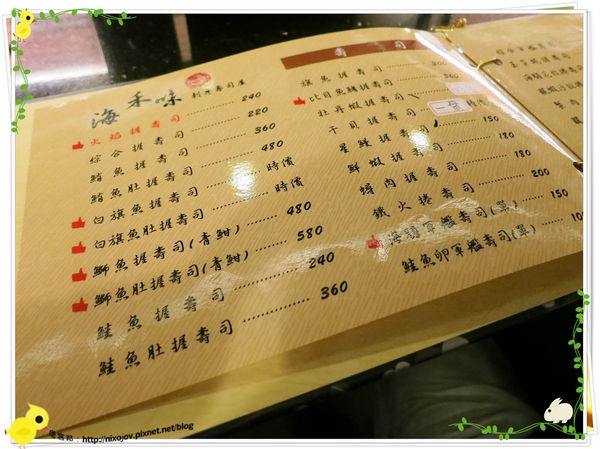 海禾味 刺身壽司屋
火焰握壽司 240
綜合握壽司 220
鮪魚握壽司 360
鮪魚肚握壽司 480
白旗魚握壽司 時價
白旗魚肚握壽司 時價
鰤魚握壽司(青魽) 480
鰤魚肚握壽司(青魽) 580
鮭魚握壽司 240
鮭魚肚握壽司 360
壽司
旗魚握壽司 300
比目魚鰭握壽司 360
牡丹蝦握壽司 時價
干貝握壽司 一貫
星鰻握壽司 150
鮮蝦握壽司 180
蟳肉握壽司 180
鐵火捲壽司 200
海膽軍艦壽司(單) 150
鮭魚卵軍艦壽司(單)
http://nixojov.pixnet.net/blog